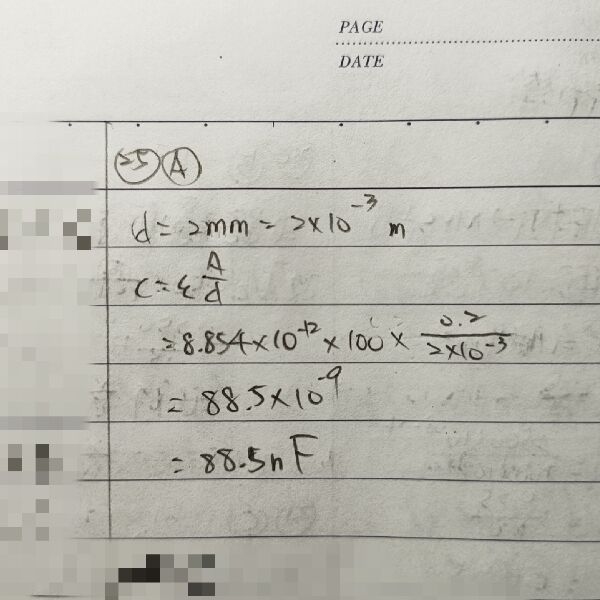 PAGE
DATE
25 A
d = 2mm = 2×10⁻³ m
C = ε A/d
= 8.854×10⁻¹² × 100 × 0.2/2×10⁻³
= 88.5×10⁻⁹
= 88.5nF